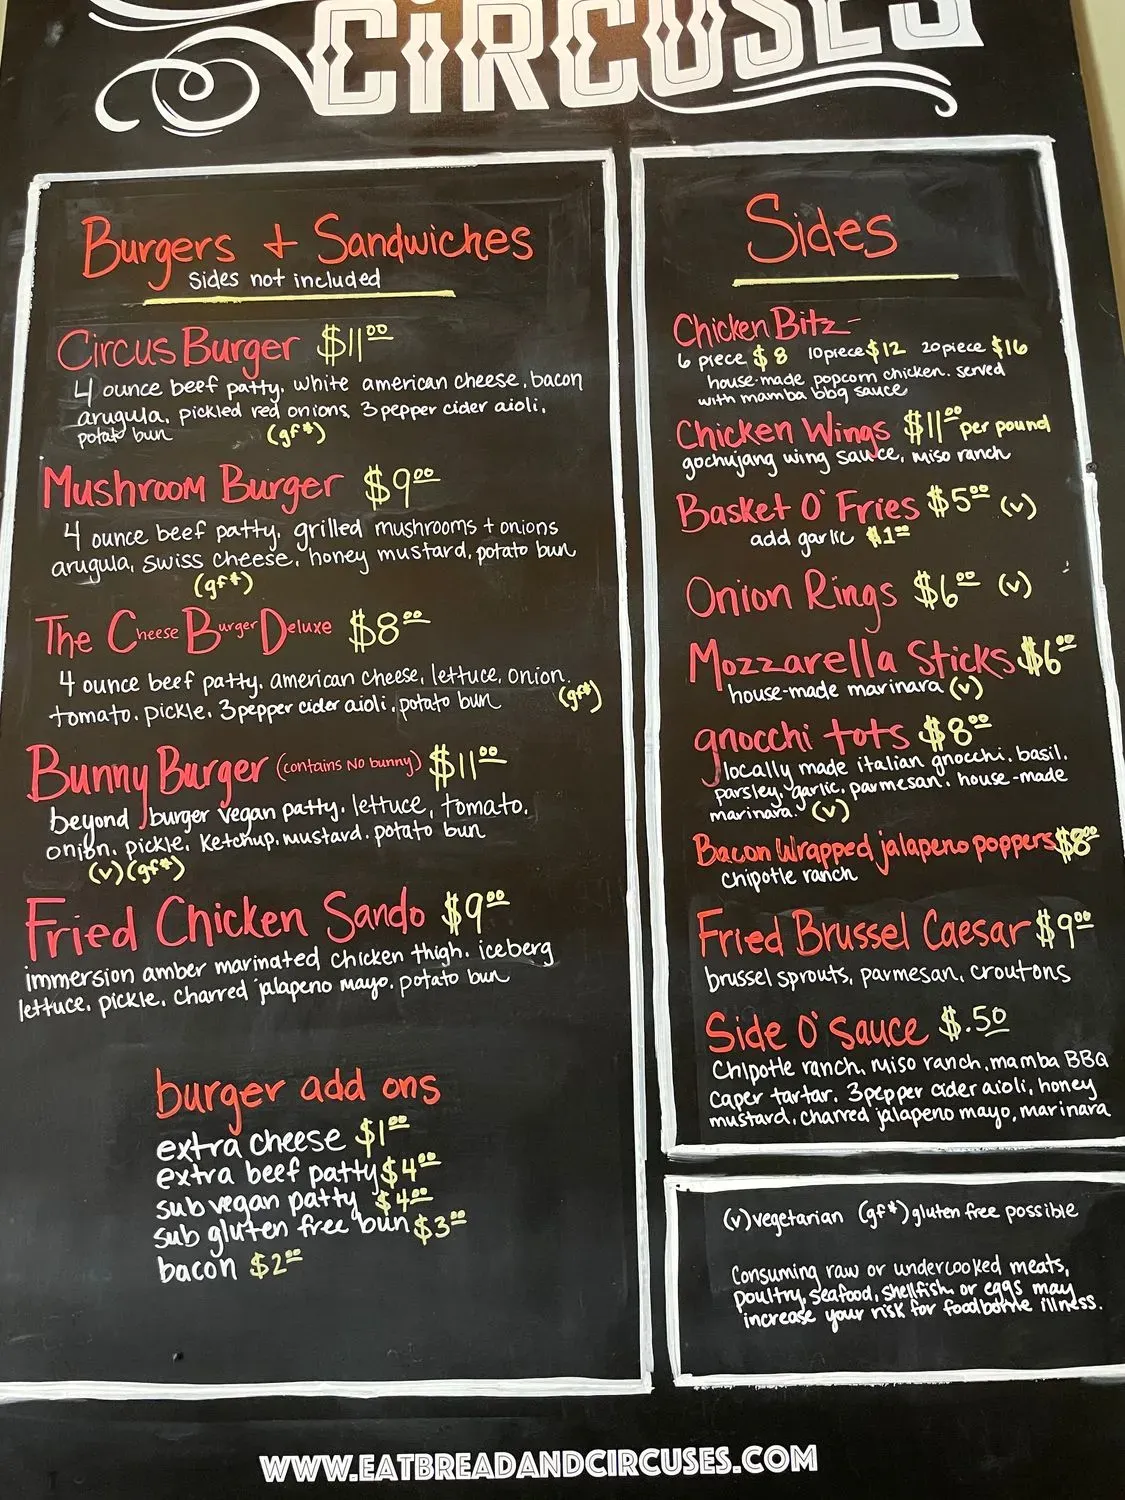 CiRCUSES
Burgers + Sandwiches
sides not included
Circus Burger $11.00
4 ounce beef patty, white american cheese, bacon
arugula, pickled red onions, 3 pepper cider aioli,
potato bun (gf*)
Mushroom Burger $9.00
4 ounce beef patty, grilled mushrooms + onions
arugula, swiss cheese, honey mustard, potato bun
(gf*)
The Cheese Burger Deluxe $8.00
4 ounce beef patty, american cheese, lettuce, onion,
tomato, pickle, 3 pepper cider aioli, potato bun (gf*)
Bunny Burger (contains No bunny) $11.00
beyond burger vegan patty, lettuce, tomato,
onion, pickle, ketchup, mustard, potato bun
(v) (gf*)
Fried Chicken Sando $9.00
immersion amber marinated chicken thigh, iceberg
lettuce, pickle, charred jalapeno mayo, potato bun
burger add ons
extra cheese $1.00
extra beef patty $4.00
sub vegan patty $4.00
sub gluten free bun $3.00
bacon $2.00
Sides
Chicken Bitz-
6 piece $8 10piece $12 20piece $16
house-made popcorn chicken, served
with mamba bbq sauce
Chicken Wings $11.00 per pound
gochujang wing sauce, miso ranch
Basket O' Fries $5.00 (v)
add garlic $1.00
Onion Rings $6.00 (v)
Mozzarella Sticks $6.00
house-made marinara (v)
gnocchi tots $8.00
locally made italian gnocchi, basil,
parsley, garlic, parmesan, house-made
marinara. (v)
Bacon Wrapped jalapeno poppers $8.00
chipotle ranch
Fried Brussel Caesar $9.00
brussel sprouts, parmesan, croutons
Side O' sauce $.50
Chipotle ranch, miso ranch, mamba BBQ
caper tartar, 3 pepper cider aioli, honey
mustard, charred jalapeno mayo, marinara
(v) vegetarian (gf*) gluten free possible
Consuming raw or undercooked meats,
poultry, seafood, shellfish, or eggs may
increase your risk for foodborne illness.
WWW.EATBREADANDCIRCUSES.COM